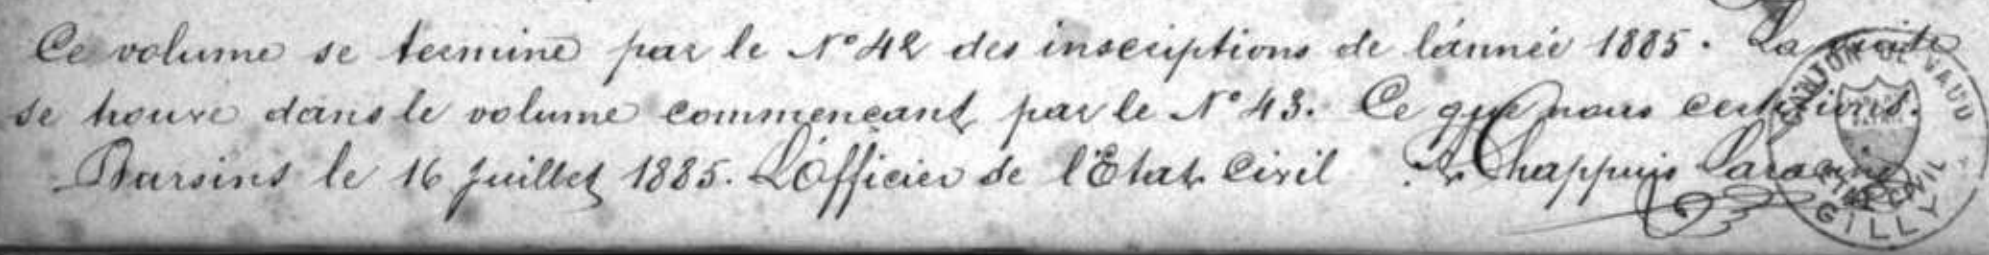 Ce volume se termine par le N° 42 des inscriptions de l'année 1885. La suite
se trouve dans le volume commençant par le N° 43. Ce que nous certifions.
Bursins le 16 Juillet 1885. L'Officier de l'Etat Civil Chappuis
CANTON DE VAUD
ETAT CIVIL
GILLY